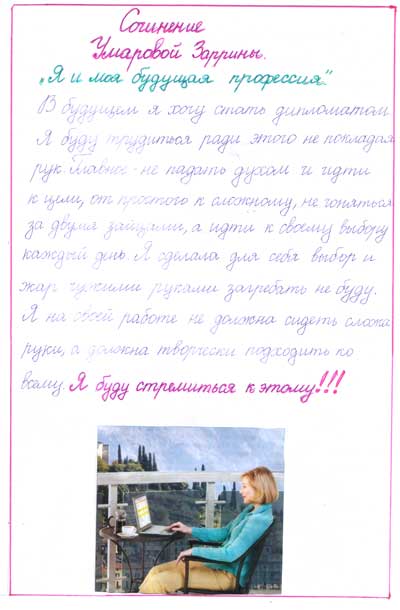 Сочинение
Умаровой Заррины.
„Я и моя будущая профессия".
В будущем я хочу стать дипломатом.
Я буду трудиться ради этого не покладая
рук. Главное - не падать духом и идти
к цели, от простого к сложному, не гоняться
за двумя зайцами, а идти к своему выбору
каждый день. Я сделала для себя выбор и
жар чужими руками загребать не буду.
Я на своей работе не должна сидеть сложа
руки, а должна творчески подходить ко
всему. Я буду стремиться к этому!!!